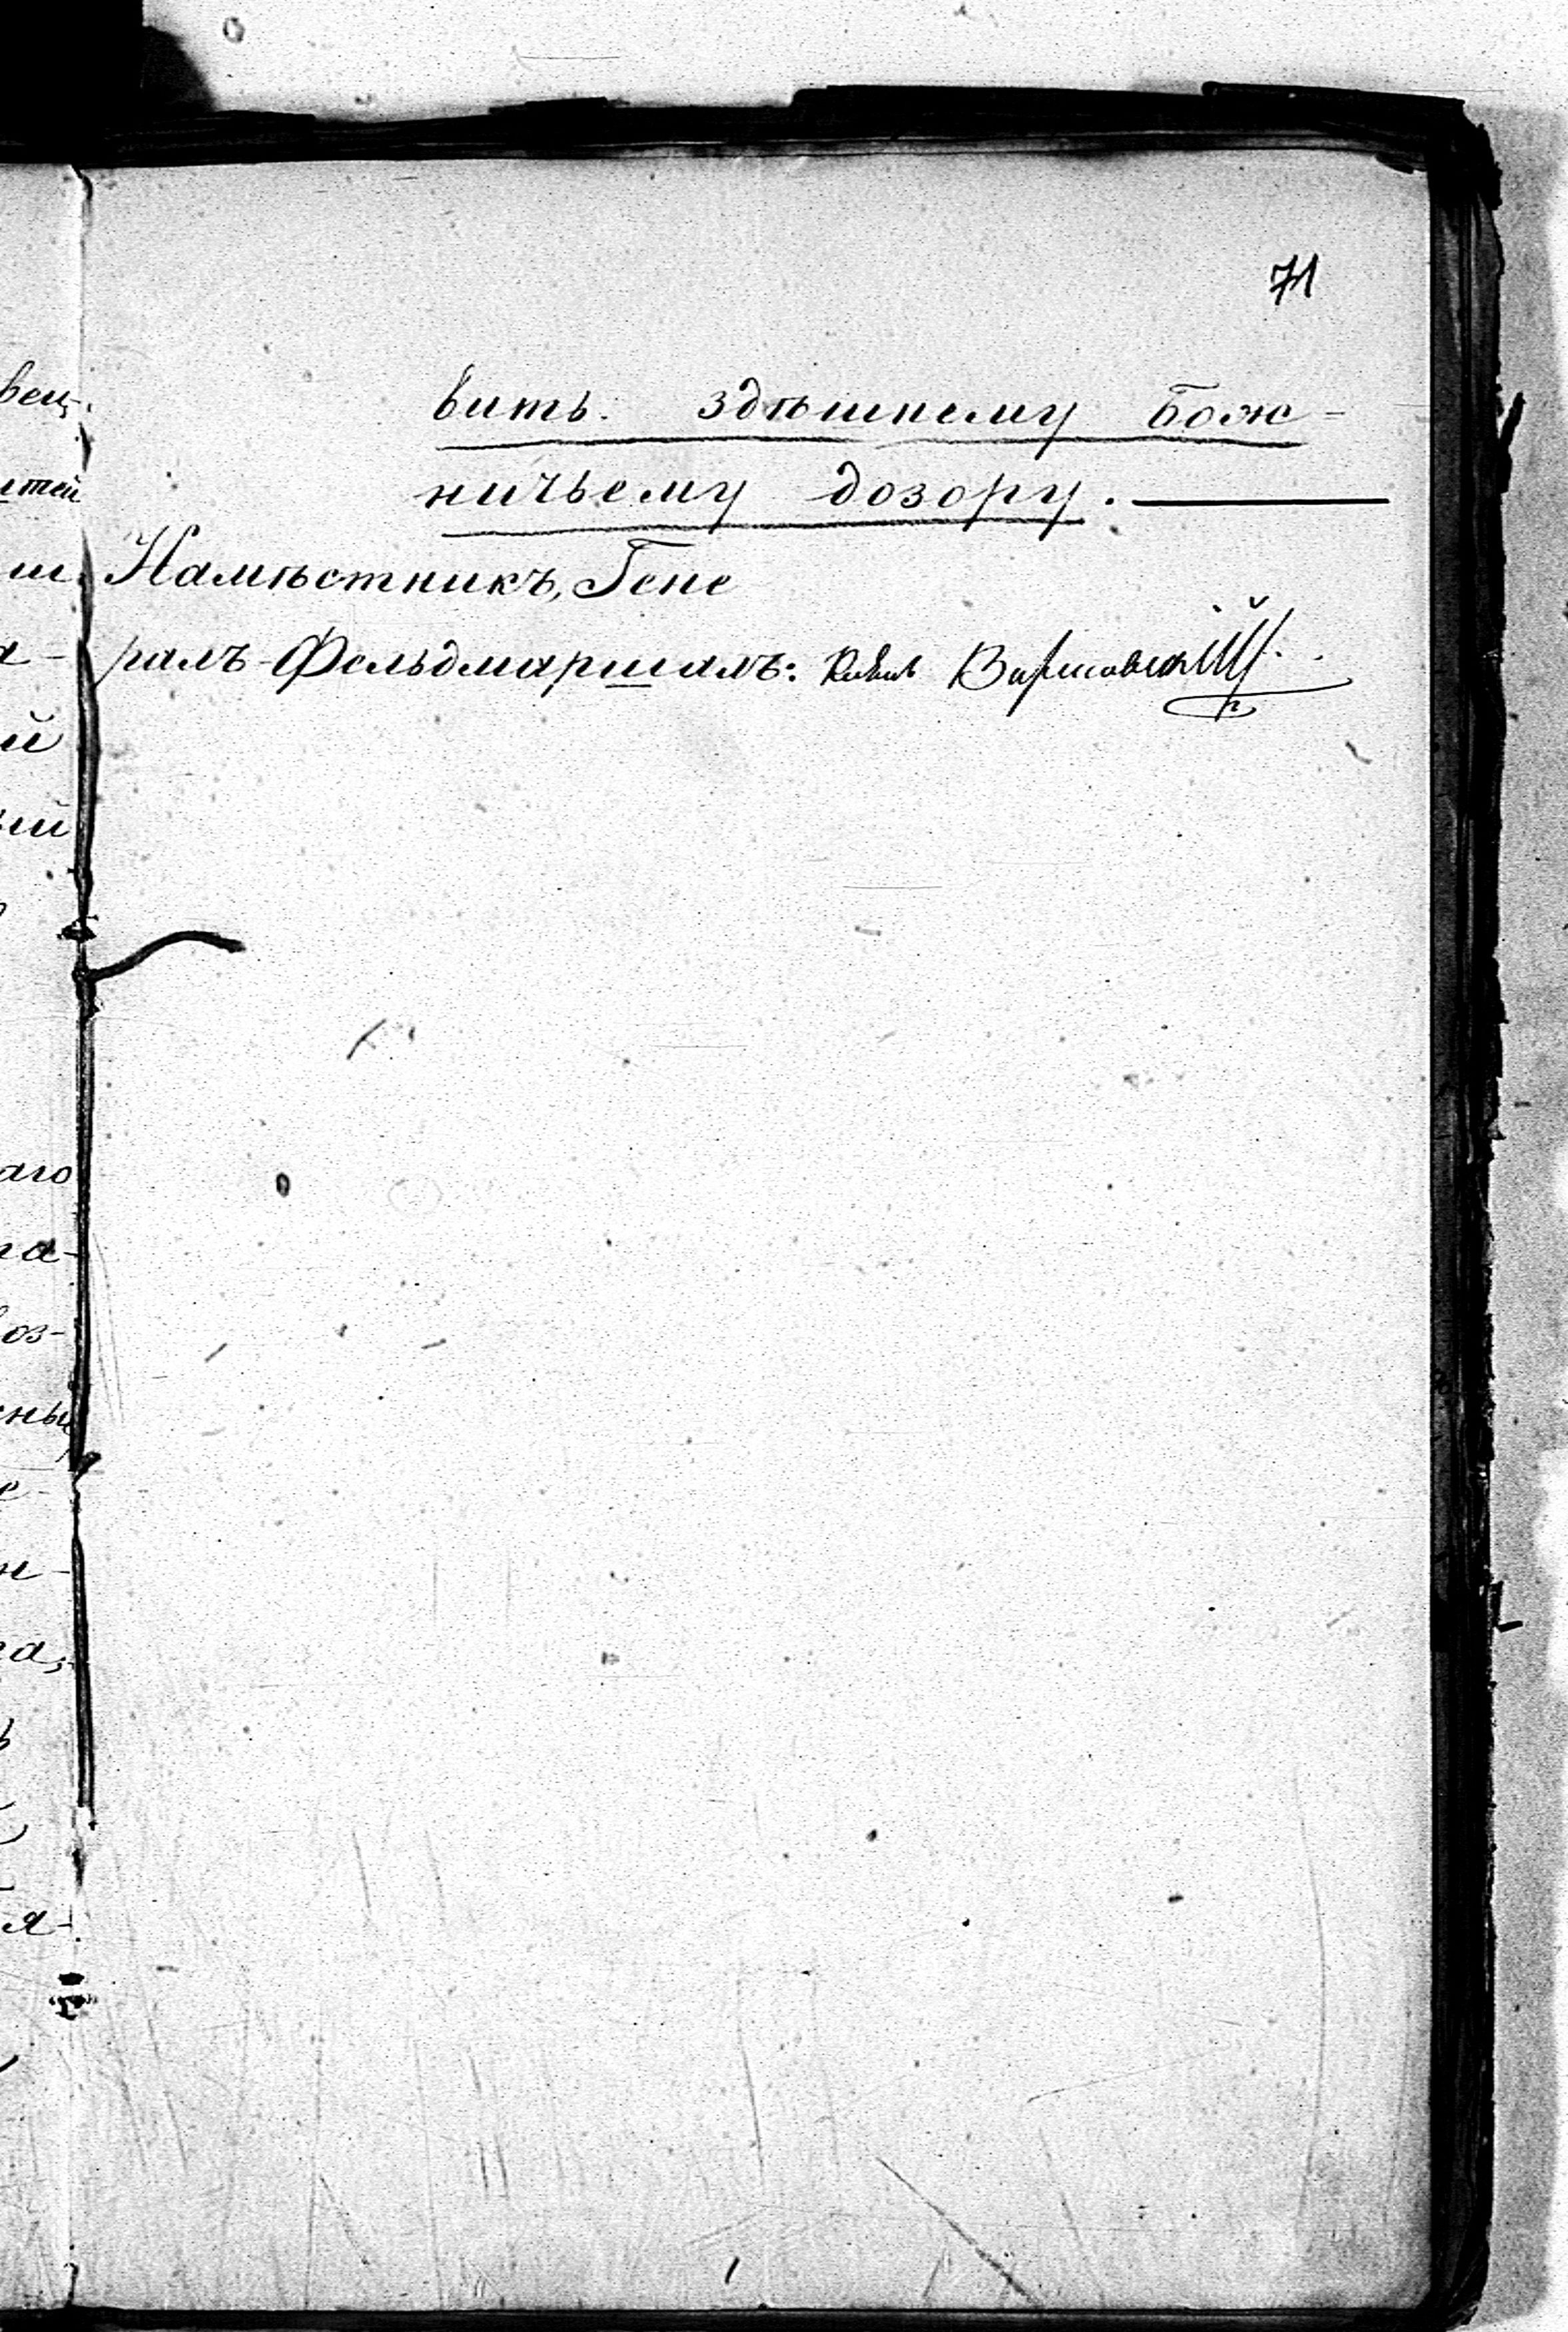 71
вить здѣшнему Бож-
ничьему дозору.
Намѣстникъ, Гене
ралъ-Фельдмаршалъ: Князь Варшавскій
вец
тей
ш
а-
й
ій
аго
га-
оз-
сны
е-
н-
га,
я-